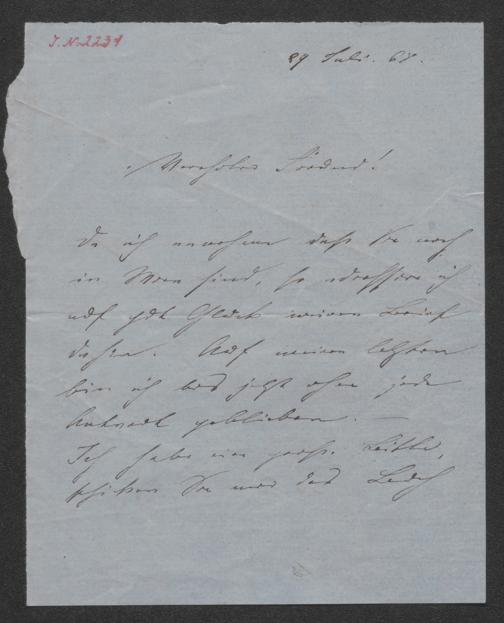 J. N. 2231
29 Juli. 67.
Verehrter Freund!
Da ich annehme daß Sie noch
in Wien sind, so adressire ich
auf gut Glück meinen Brief
dahin. Auf meinen letzten
bin ich bis jetzt ohne jede
Antwort geblieben. —
Ich habe eine große Bitte,
schicken Sie mir das